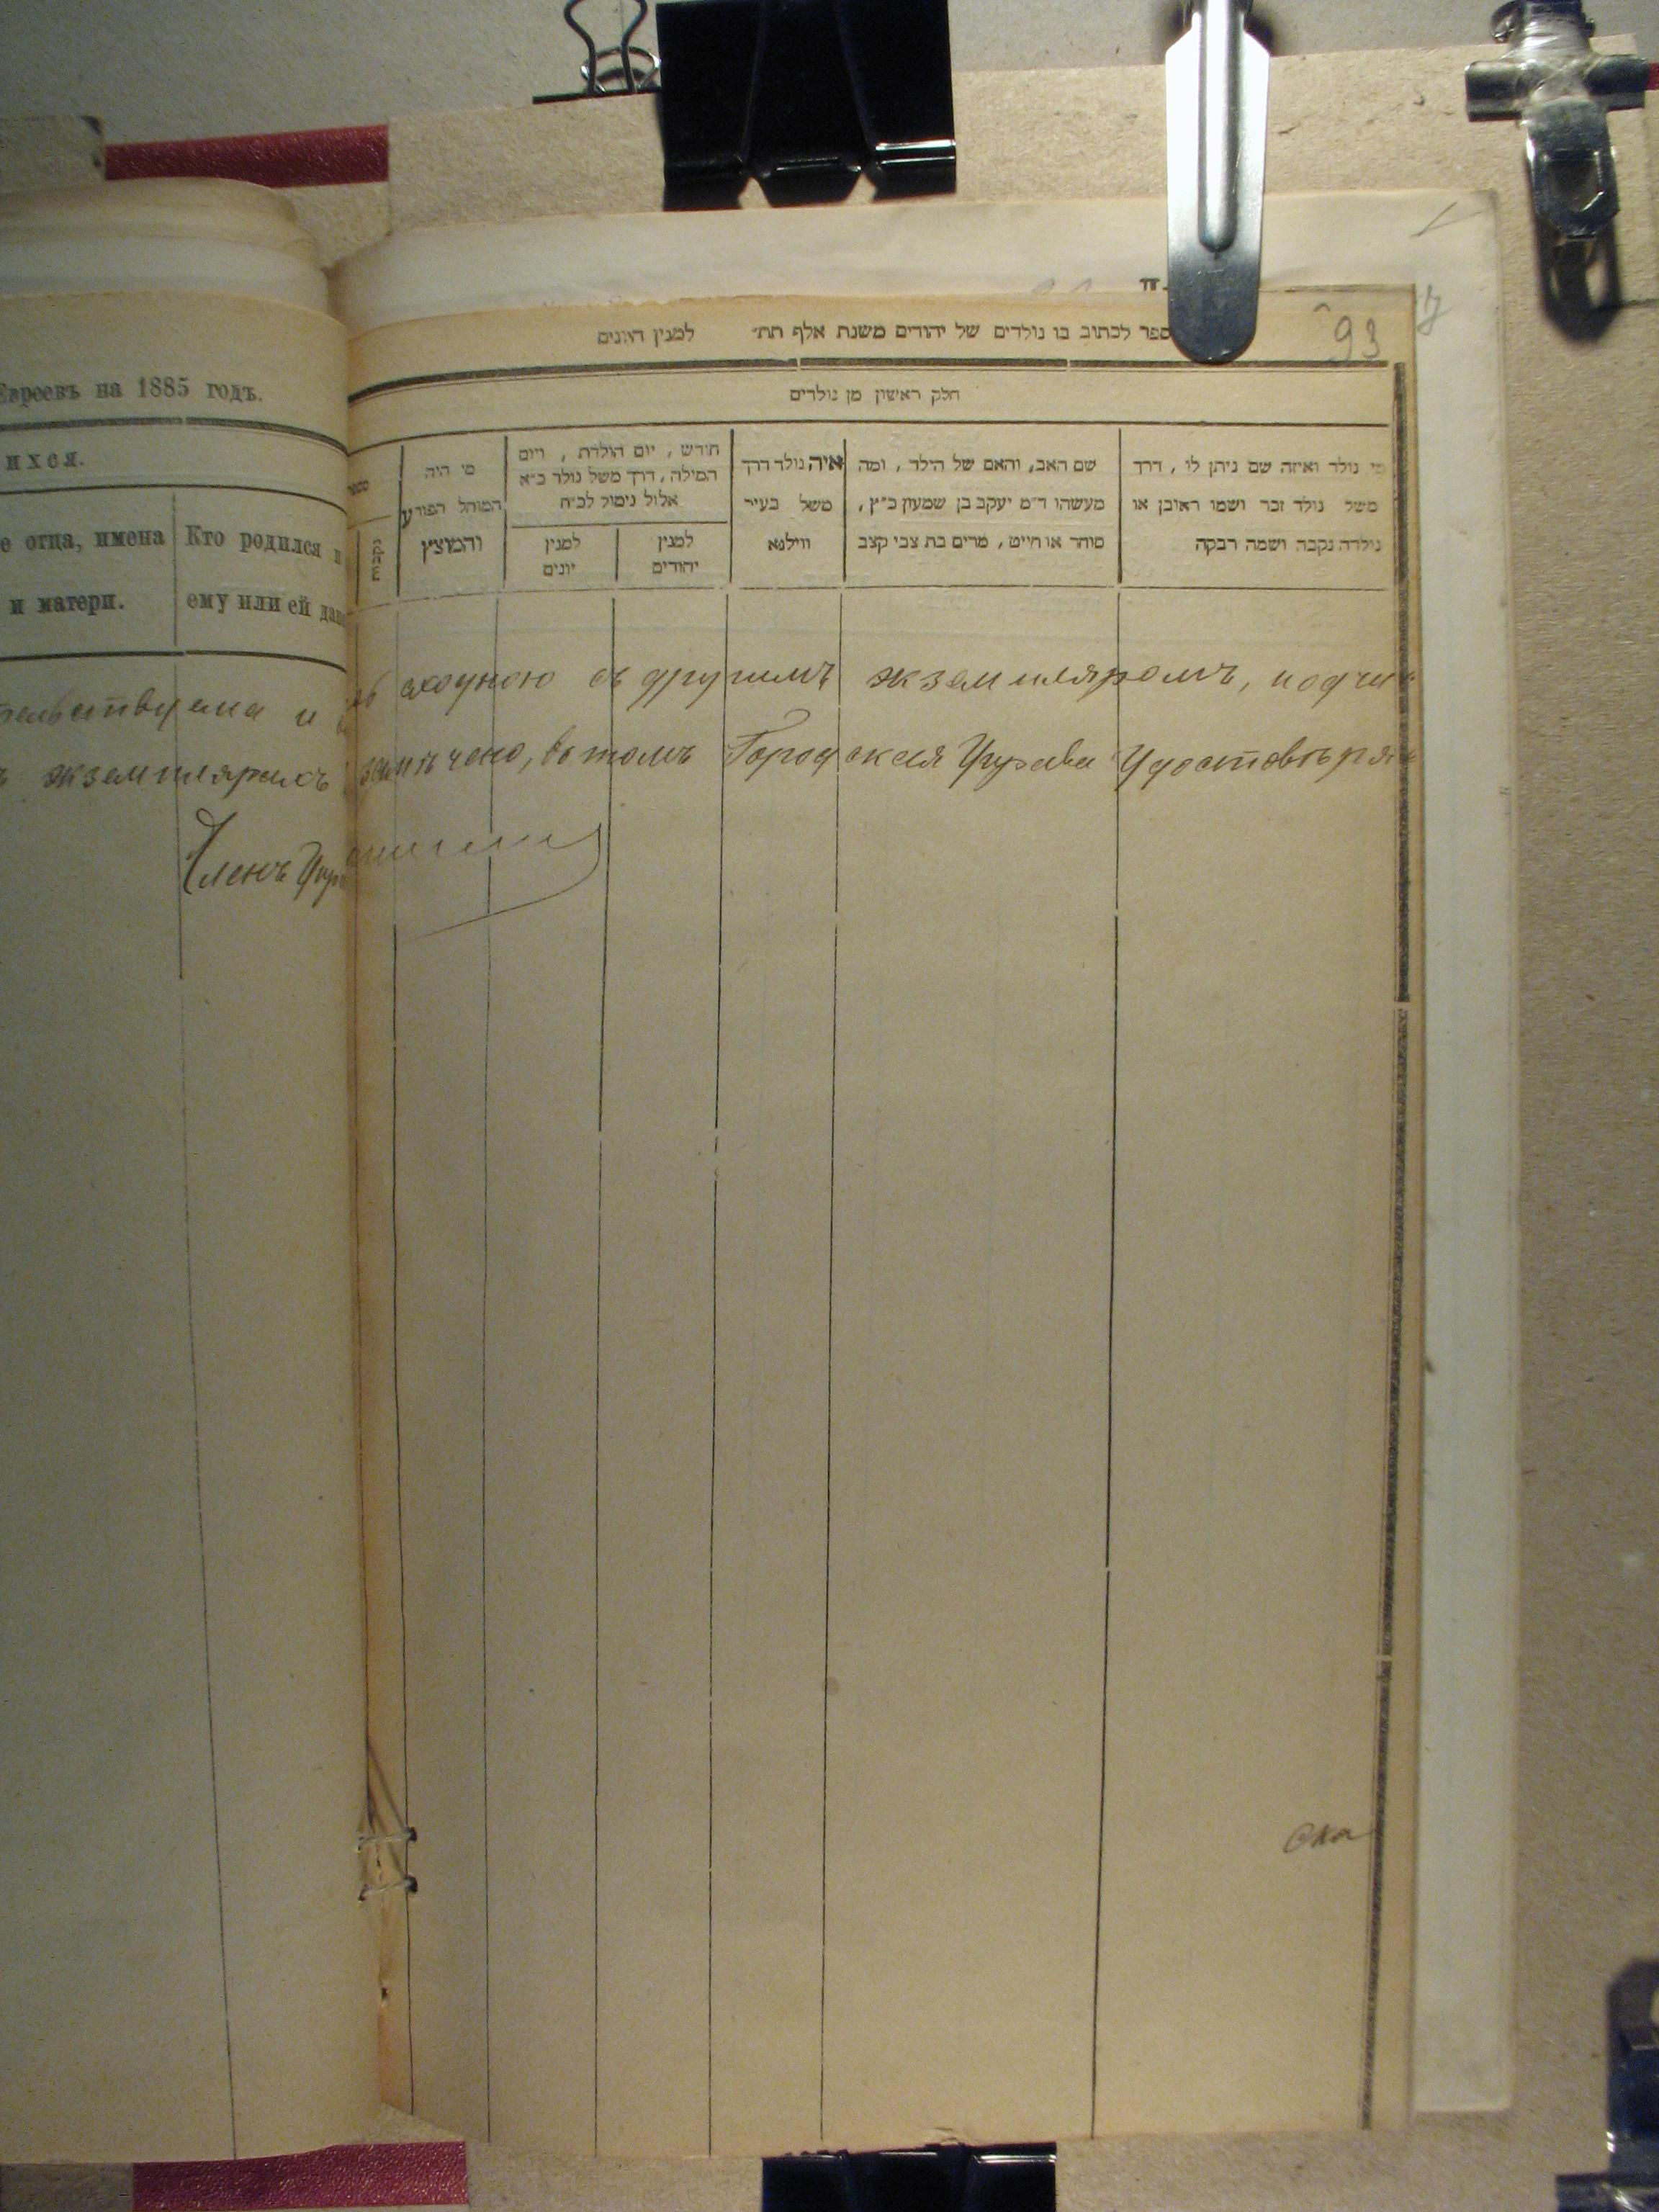 Евреевъ на 1885 годъ.
ихся.
е отца, имена
и матери.
Кто родился и
ему или ей дано
экземпляромъ
Членъ Упр
93
ספר לכתוב בו נולדים של יהודים משנת אלף תת״ למנין היונים
חלק ראשון מן נולדים
מי נולד ואיזה שם ניתן לו, דרך
משל נולד זכר ושמו ראובן או
נולדה נקבה ושמה רבקה
שם האב, והאם של הילד, ומה
מעשהו ד״מ יעקב בן שמעון כ״ץ,
סוחר או חייט, מרים בת צבי קצב
איה נולד דרך
משל בעיר
ווילנא
חודש, יום הולדת, ויום
המילה, דרך משל נולד כ״א
אלול נימול לכ״ח
למנין
יהודים
למנין
יונים
מי היה
המוהל הפורע
והמוצץ
מספר
נקבות
сходною съ другимъ экземпляромъ,
замѣчено, въ томъ Городская Управа Удостовѣря